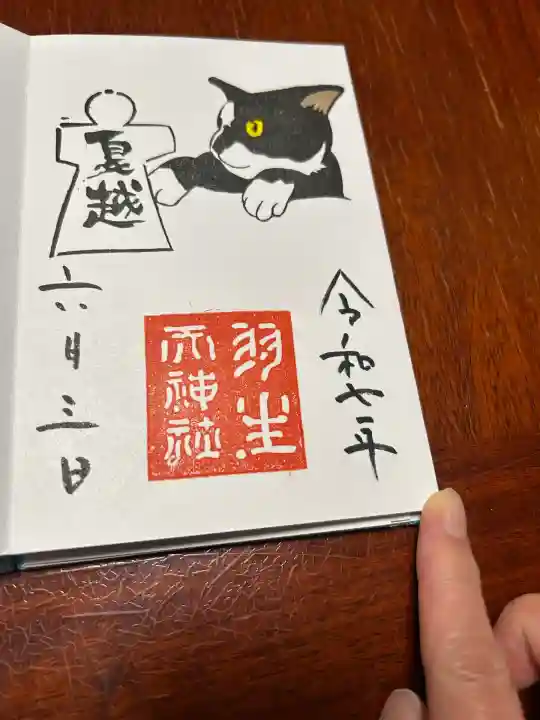 夏越
令和七年
羽生
天神社
六月三日